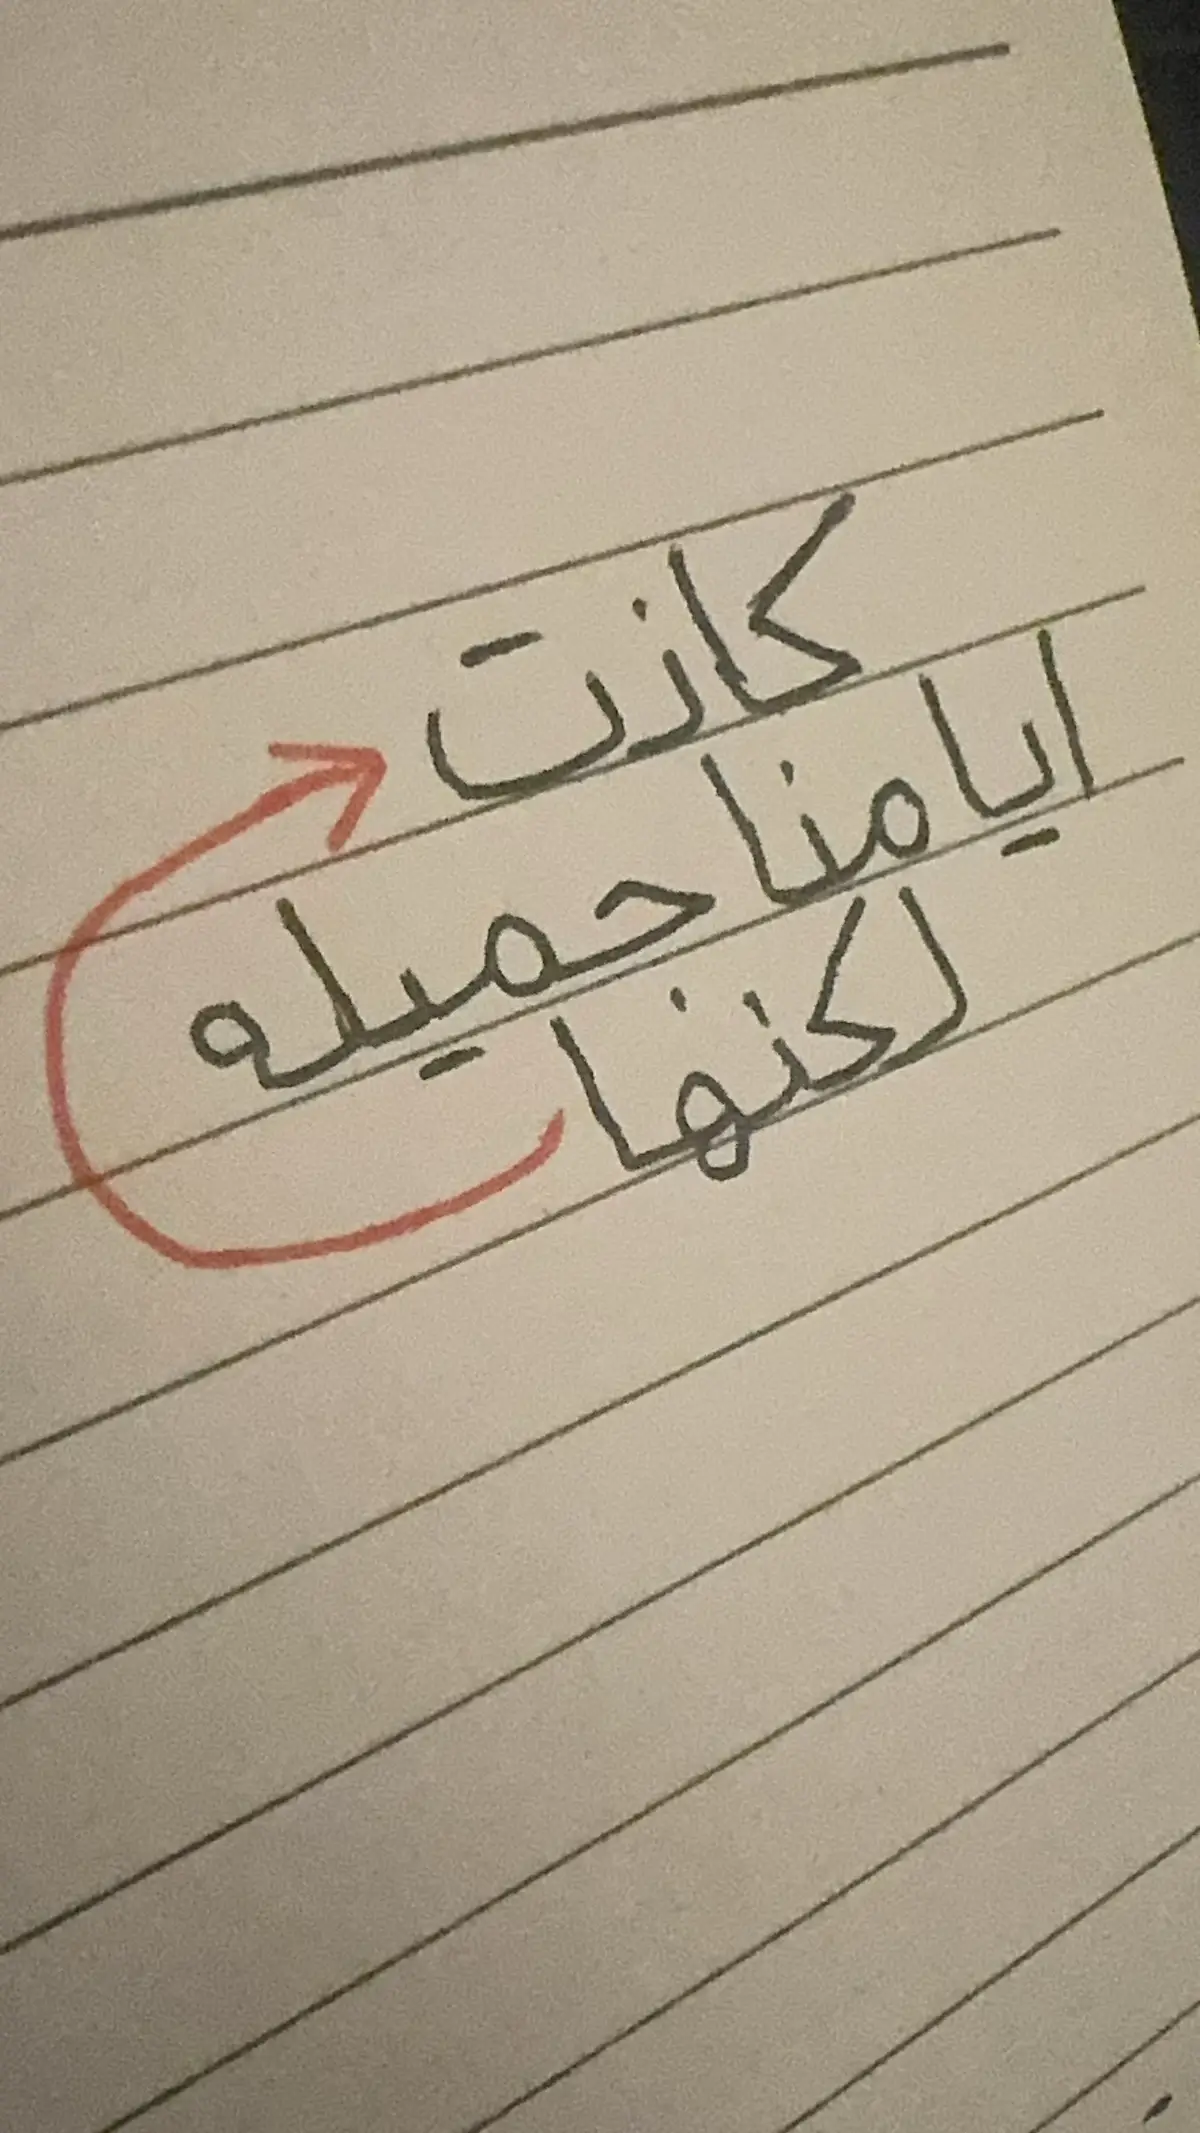 كانت
ايامنا جميله
لكنها